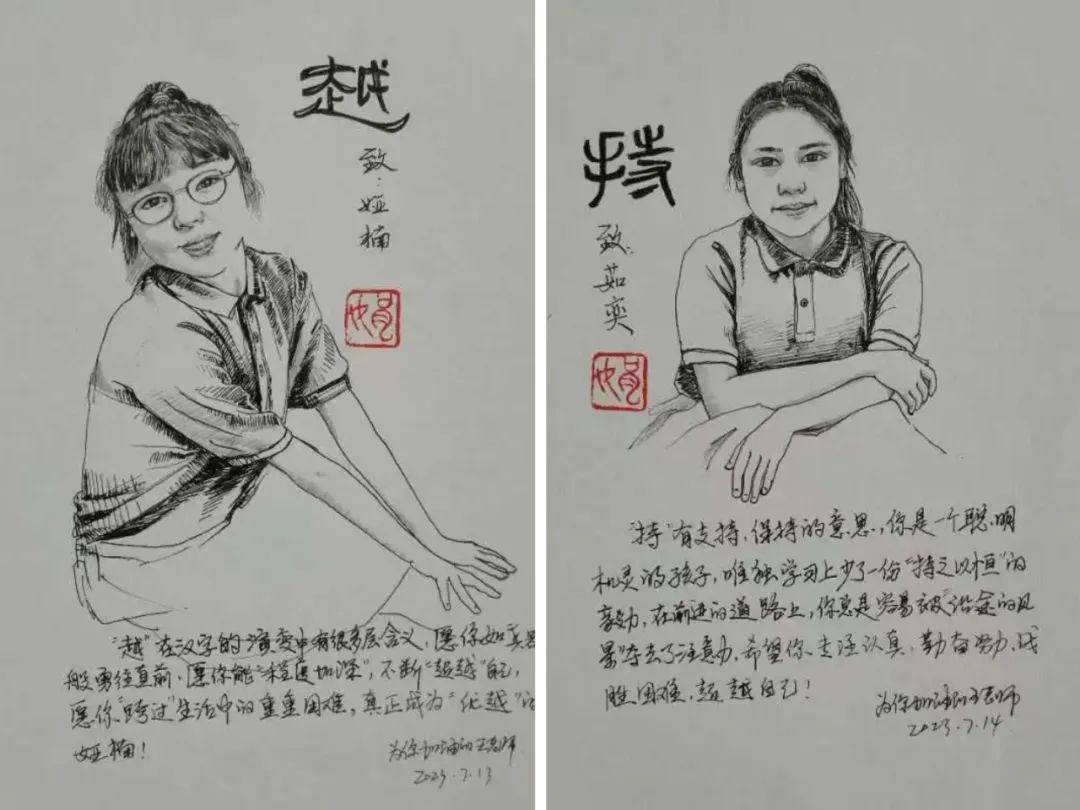 越
致:娅楠
娟
"越"在汉字的演变中有很多层含义,愿你如
般勇往直前,愿你能"程度加深",不断"超越"自己,
愿你"跨过"生活中的重重困难,真正成为"优越"的
娅楠!
为你加油的王老师
2023.7.13
持
致:茹奕
娟
"持"有支持、保持的意思,你是一个聪明
机灵的孩子,唯独学习上少了一份"持之以恒"的
毅力,在前进的道路上,你总是容易被"沿途的风
景"夺去了注意力,希望你生活认真,勤奋努力,战
胜困难,超越自己!
为你加油的王老师
2023.7.14